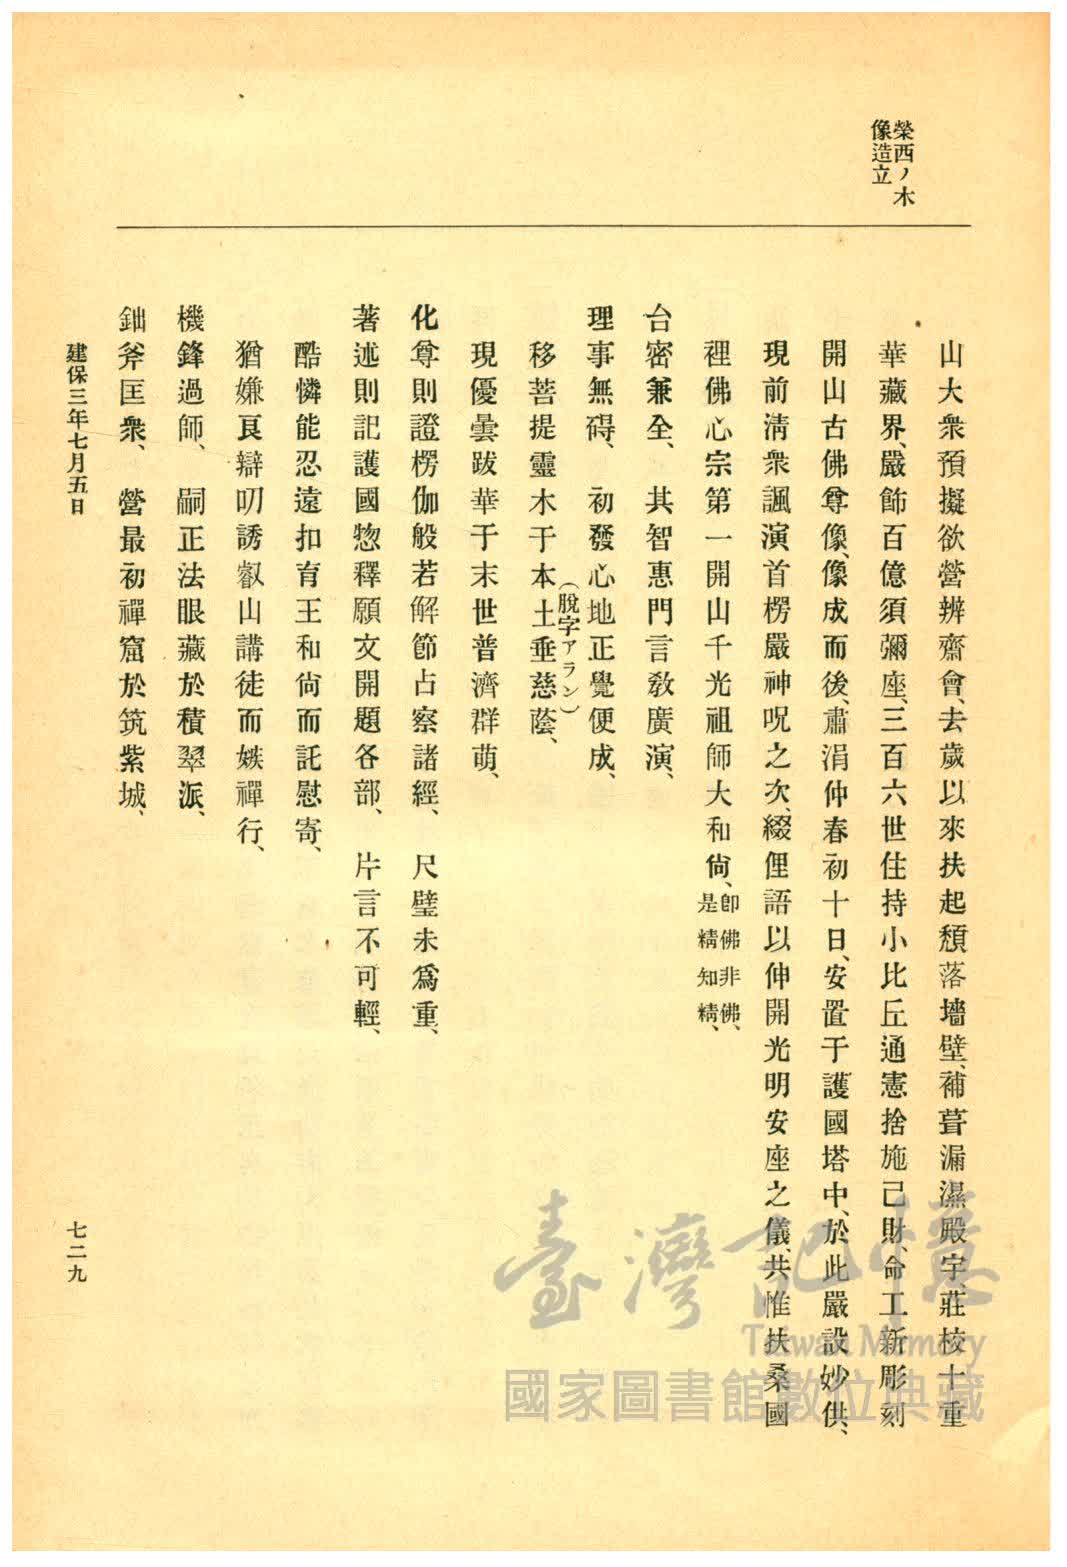 榮西ノ木
像造立
山大衆預擬欲營辨齋會、去歲以來扶起頹落墻壁、補葺漏濕殿宇、莊校十重
華藏界、嚴飾百億須彌座、三百六世住持小比丘通憲捨施己財、命工新彫刻
開山古佛尊像、像成而後、肅涓仲春初十日、安置于護國塔中、於此嚴設妙供、
現前淸衆諷演首楞嚴神呪之次、綴俚語以伸開光明安座之儀、共惟扶桑國
裡佛心宗第一開山千光祖師大和尙、卽佛非佛、是精知精、
台密兼全、其智惠門言敎廣演、
理事無碍、初發心地正覺便成、
(脫字アラン)
移菩提靈木于本土垂慈蔭、
現優曇跋華于末世普濟群萌、
化尊則證楞伽般若解節占察諸經、尺璧未爲重、
著述則記護國惣釋願文開題各部、片言不可輕、
酷憐能忍遠扣育王和尙而託慰寄、
猶嫌艮辯叨誘叡山講徒而嫉禪行、
機鋒過師、嗣正法眼藏於積翠派、
鈯斧匡衆、營最初禪窟於筑紫城、
建保三年七月五日
七二九
臺灣記憶
Taiwan Memory
國家圖書館數位典藏